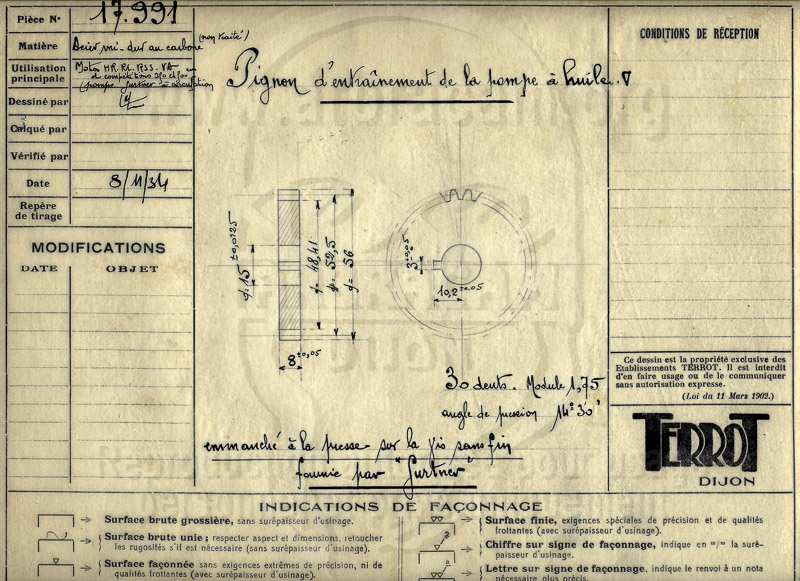 Pièce N° 17.991
Matière Acier mi-dur au carbone (non traité)
Utilisation principale Moteur HR. RL. RSS. VA
Dessiné par
Calqué par
Vérifié par
Date 8/11/34
Repère de tirage
MODIFICATIONS
DATE OBJET
Pignon d'entraînement de la pompe à huile.
CONDITIONS DE RÉCEPTION
ϕ=15 ±0,0125
ϕ= 48,41
ϕ= 52,5
ϕ= 56
8 ±0,05
3 ±0,05
10,2 ±0,05
30 dents. Module 1,75
angle de pression 14°30'
emmanché à la presse sur la vis sans fin
fournie par "Gurtner"
Ce dessin est la propriété exclusive des
Etablissements TERROT. Il est interdit
d'en faire usage ou de le communiquer
sans autorisation expresse.
(Loi du 11 Mars 1902.)
TERROT
DIJON
INDICATIONS DE FAÇONNAGE
Surface brute grossière, sans surépaisseur d'usinage.
Surface brute unie ; respecter aspect et dimensions, retoucher
les rugosités s'il est nécessaire (sans surépaisseur d'usinage).
Surface façonnée sans exigences extrêmes de précision, ni de
qualités frottantes (avec surépaisseur d'usinage).
Surface finie, exigences spéciales de précision et de qualités
frottantes (avec surépaisseur d'usinage).
Chiffre sur signe de façonnage, indique en m/m la suré-
paisseur d'usinage.
Lettre sur signe de façonnage, indique le renvoi à un nota
nécessaire plus précis.